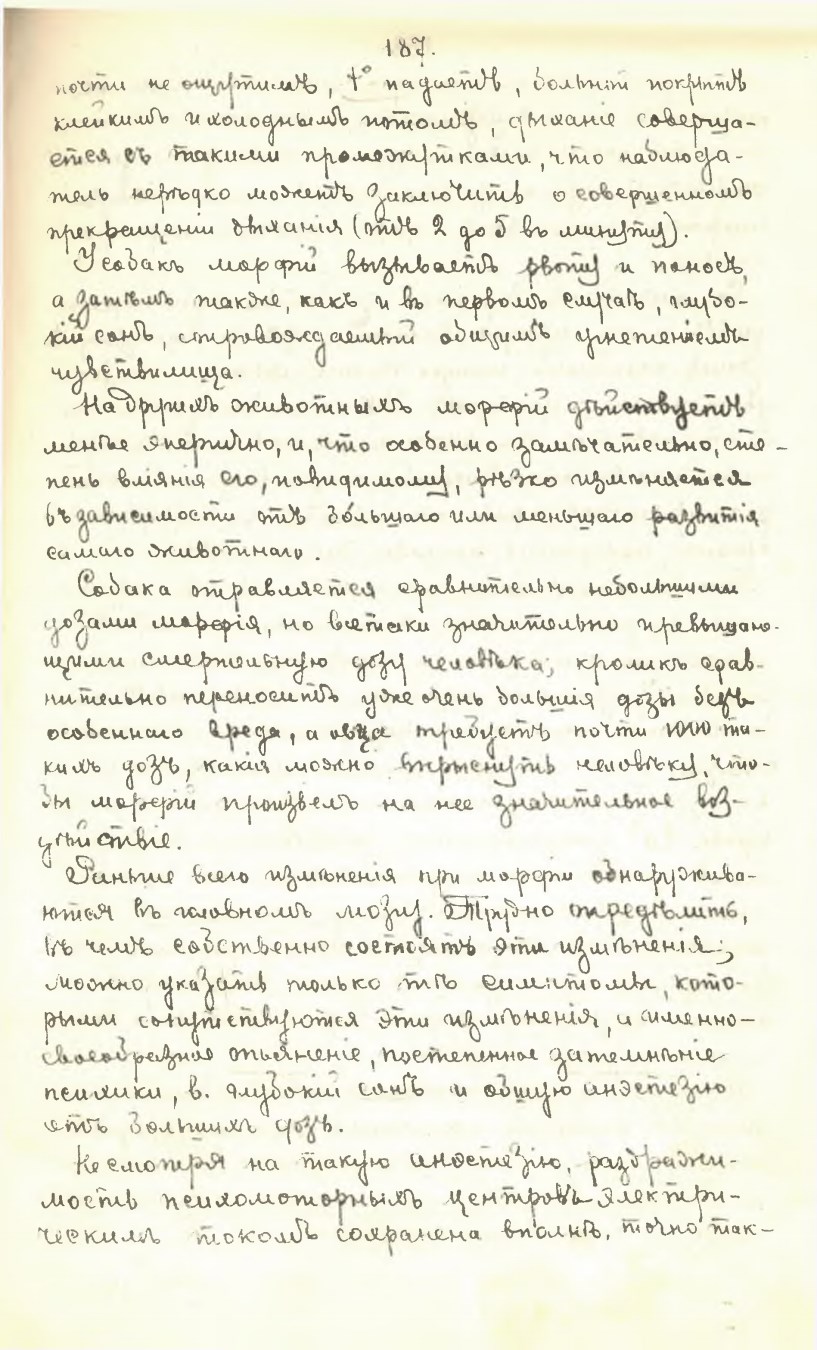 187.
почти не ощутимъ, t° падаетъ, больной покрытъ
клейкимъ и холоднымъ потомъ, дыханіе соверша-
ется съ такими промежутками, что наблюда-
тель нерѣдко можетъ заключить о совершенномъ
прекращеніи дыханія (отъ 2 до 5 въ минуту).
У собакъ морфій вызываетъ рвоту и поносъ,
а затѣмъ также, какъ и въ первомъ случаѣ, глубо-
кій сонъ, сопровождаемый общимъ угнетеніемъ
чувствилища.
На другихъ животныхъ морфій дѣйствуетъ
менѣе энергично, и, что особенно замѣчательно, сте-
пень вліянія его, повидимому, рѣзко измѣняется
въ зависимости отъ бо́льшаго или меньшаго развитія
самаго животнаго.
Собака отравляется сравнительно небольшими
дозами морфія, но всетаки значительно превышаю-
щими смертельную дозу человѣка; кроликъ срав-
нительно переноситъ уже очень большія дозы безъ
особеннаго вреда, а овца требуетъ почти 1000 та-
кихъ дозъ, какія можно впрыснуть человѣку, что-
бы морфій произвелъ на нее значительное воз-
дѣйствіе.
Раньше всего измѣненія при морфіи обнаружива-
ются въ головномъ мозгу. Трудно опредѣлить,
въ чемъ собственно состоятъ эти измѣненія;
можно указать только тѣ симптомы, кото-
рыми сопутствуются эти измѣненія, и именно—
своеобразное опьяненіе, постепенное затемнѣніе
психики, в. глубокій сонъ и общую анэстезію
отъ большихъ дозъ.
Не смотря на такую анэстезію, раздражи-
мость психомоторныхъ центровъ электри-
ческимъ токомъ сохранена вполнѣ, точно так-